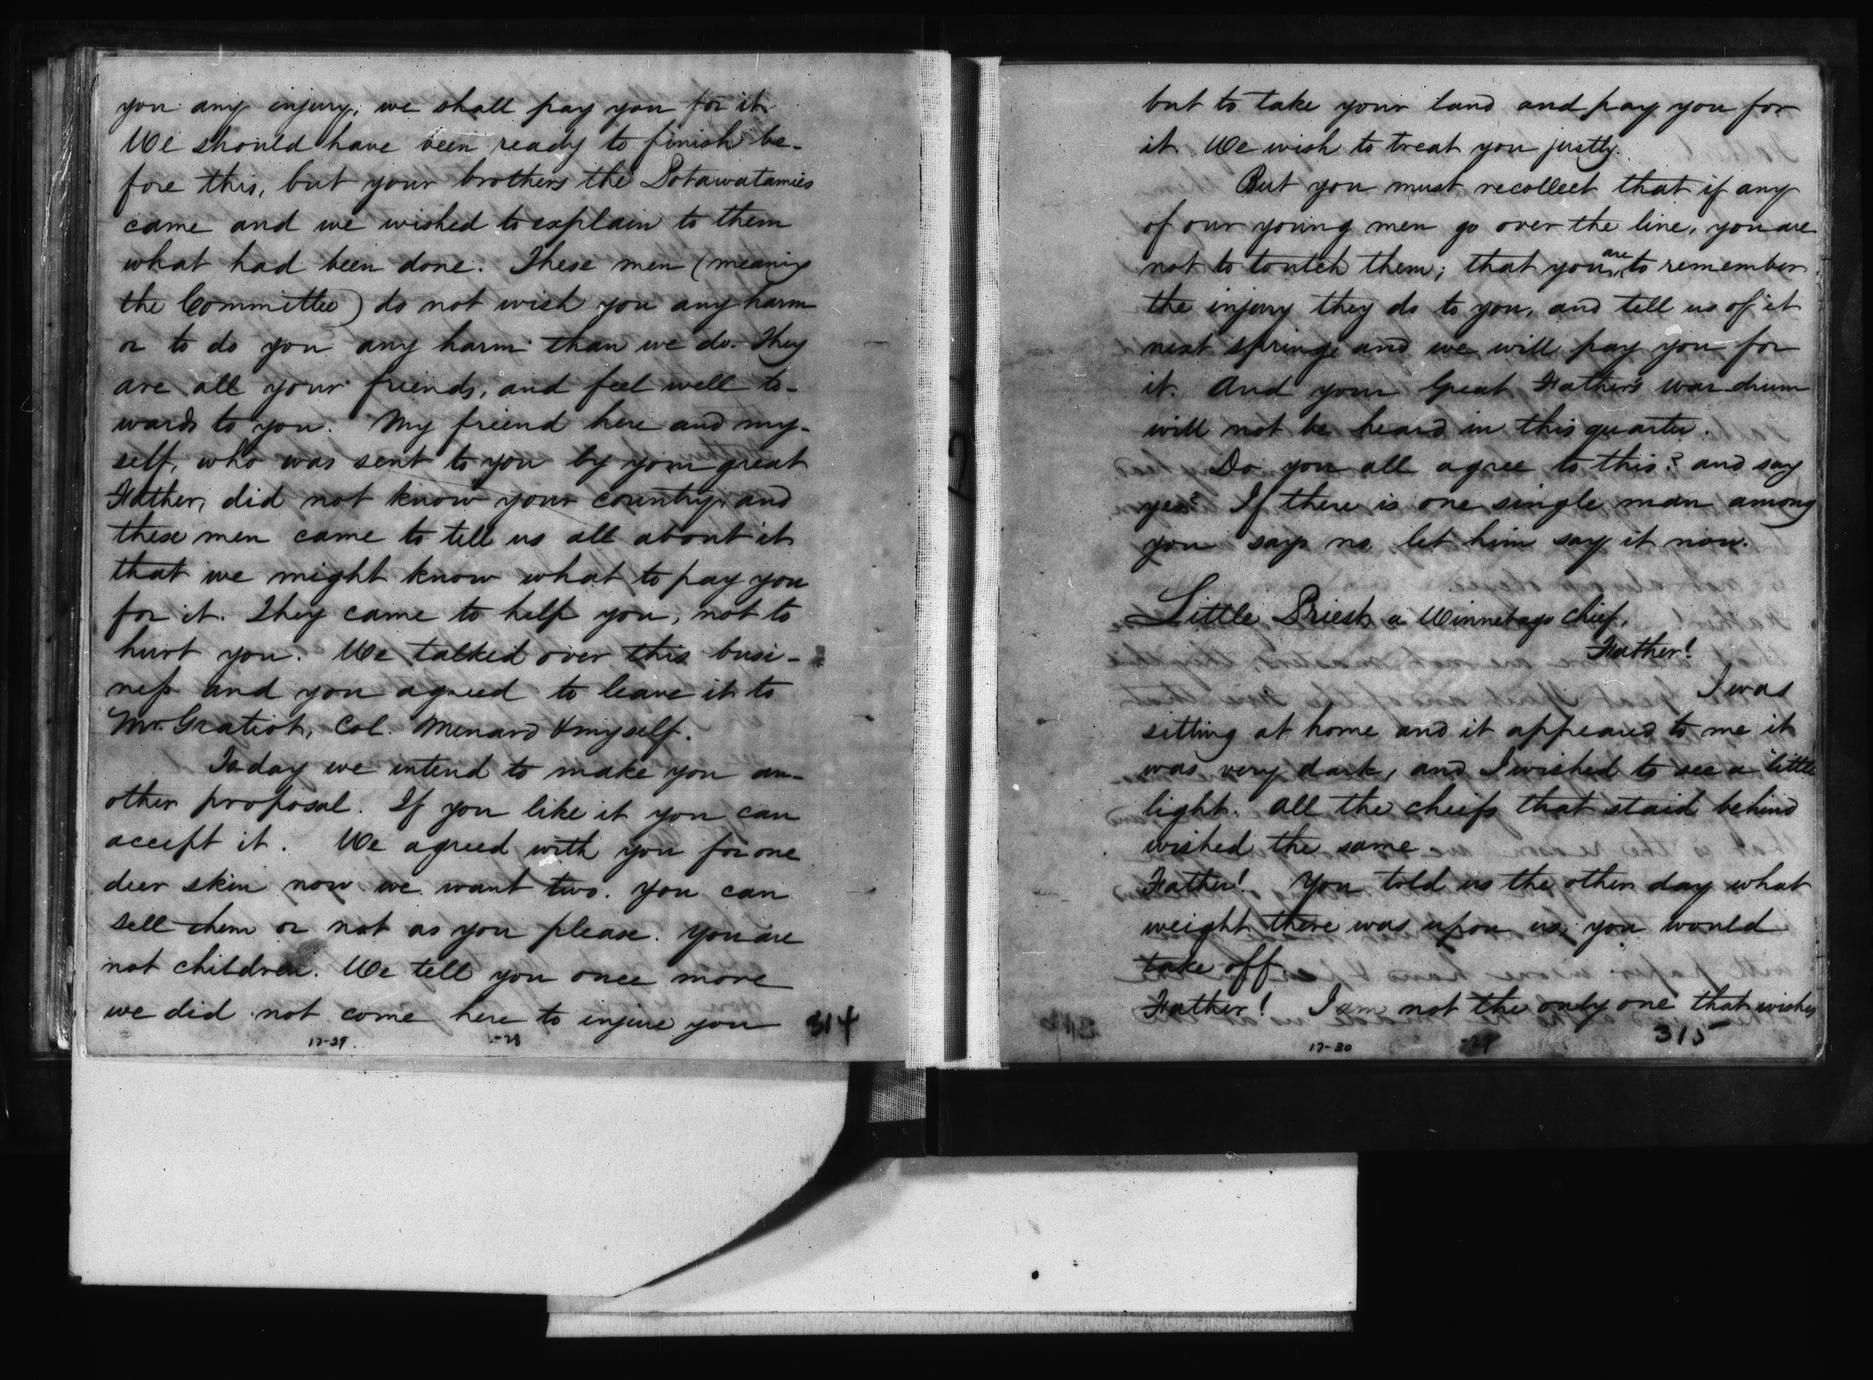 you any injury, we shall pay you for it.
We should have been ready to finish be-
fore this, but your brothers the Potawatamies
came and we wished to explain to them
what had been done. These men (meaning
the Committee) do not wish you any harm
or to do you any harm than we do. They
are all your friends, and feel well to-
wards to you. My friend here and my-
self, who was sent to you by your great
Father, did not know your country, and
these men came to tell us all about it
that we might know what to pay you
for it. They came to help you, not to
hurt you. We talked over this busi-
ness and you agreed to leave it to
Mr. Gratiot, Col. Menard & myself.
To day we intend to make you an-
other proposal. If you like it you can
accept it. We agreed with you for one
deer skin now we want two. You can
sell them or not as you please. You are
not children. We tell you once more
we did not come here to injure you
314
17-29 -28
but to take your land and pay you for
it. We wish to treat you justly.
But you must recollect that if any
of our young men go over the line, you are
not to toutch them; that you are to remember
the injury they do to you, and tell us of it
next spring, and we will pay you for
it. And your Great Father's war drum
will not be heard in this quarter.
Do you all agree to this? and say
yes? If there is one single man among
you says no let him say it now.
Little Priest, a Winnebago Chief.
Father!
I was
sitting at home and it appeared to me it
was very dark, and I wished to see a little
light. All the cheifs that staid behind
wished the same
Father! You told us the other day what
weight there was upon us, you would
take off.
Father! I am not the only one that wishes
315
17-30 -29